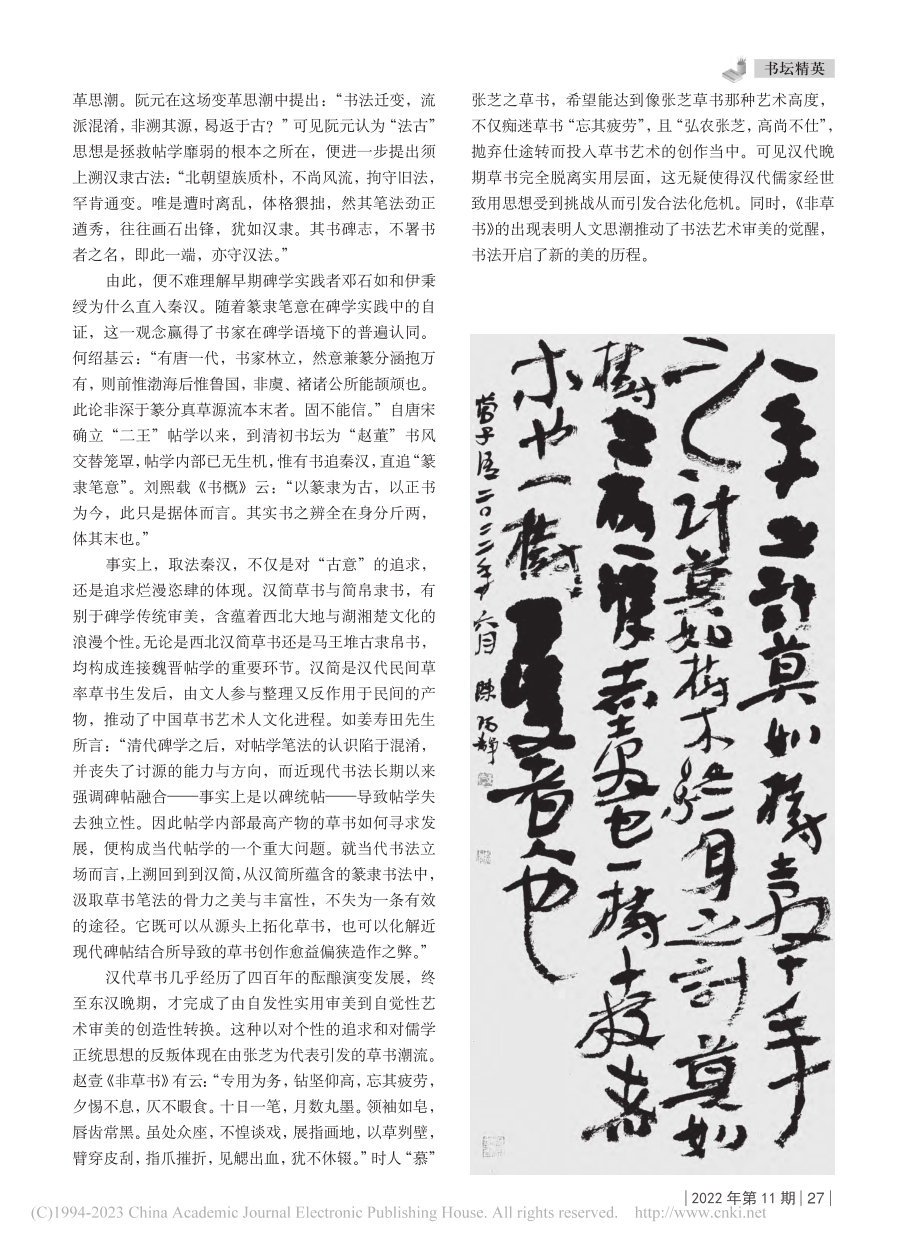 书坛精英
革思潮。阮元在这场变革思潮中提出：“书法迁变，流
派混淆，非溯其源，曷返于古？”可见阮元认为“法古”
思想是拯救帖学靡弱的根本之所在，便进一步提出须
上溯汉隶古法：“北朝望族质朴，不尚风流，拘守旧法，
罕肯通变。唯是遭时离乱，体格猥拙，然其笔法劲正
遒秀，往往画石出锋，犹如汉隶。其书碑志，不署书
者之名，即此一端，亦守汉法。”
由此，便不难理解早期碑学实践者邓石如和伊秉
绶为什么直入秦汉。随着篆隶笔意在碑学实践中的自
证，这一观念赢得了书家在碑学语境下的普遍认同。
何绍基云：“有唐一代，书家林立，然意兼篆分涵抱万
有，则前惟渤海后惟鲁国，非虞、褚诸公所能颉颃也。
此论非深于篆分真草源流本末者。固不能信。”自唐宋
确立“二王”帖学以来，到清初书坛为“赵董”书风
交替笼罩，帖学内部已无生机，惟有书追秦汉，直追“篆
隶笔意”。刘熙载《书概》云：“以篆隶为古，以正书
为今，此只是据体而言。其实书之辨全在身分斤两，
体其末也。”
事实上，取法秦汉，不仅是对“古意”的追求，
还是追求烂漫恣肆的体现。汉简草书与简帛隶书，有
别于碑学传统审美，含蕴着西北大地与湖湘楚文化的
浪漫个性。无论是西北汉简草书还是马王堆古隶帛书，
均构成连接魏晋帖学的重要环节。汉简是汉代民间草
率草书生发后，由文人参与整理又反作用于民间的产
物，推动了中国草书艺术人文化进程。如姜寿田先生
所言：“清代碑学之后，对帖学笔法的认识陷于混淆，
并丧失了讨源的能力与方向，而近现代书法长期以来
强调碑帖融合——事实上是以碑统帖——导致帖学失
去独立性。因此帖学内部最高产物的草书如何寻求发
展，便构成当代帖学的一个重大问题。就当代书法立
场而言，上溯回到到汉简，从汉简所蕴含的篆隶书法中，
汲取草书笔法的骨力之美与丰富性，不失为一条有效
的途径。它既可以从源头上拓化草书，也可以化解近
现代碑帖结合所导致的草书创作愈益偏狭造作之弊。”
汉代草书几乎经历了四百年的酝酿演变发展，终
至东汉晚期，才完成了由自发性实用审美到自觉性艺
术审美的创造性转换。这种以对个性的追求和对儒学
正统思想的反叛体现在由张芝为代表引发的草书潮流。
赵壹《非草书》有云：“专用为务，钻坚仰高，忘其疲劳，
夕惕不息，仄不暇食。十日一笔，月数丸墨。领袖如皂，
唇齿常黑。虽处众座，不惶谈戏，展指画地，以草刿壁，
臂穿皮刮，指爪摧折，见鳃出血，犹不休辍。”时人“慕”
张芝之草书，希望能达到像张芝草书那种艺术高度，
不仅痴迷草书“忘其疲劳”，且“弘农张芝，高尚不仕”，
抛弃仕途转而投入草书艺术的创作当中。可见汉代晚
期草书完全脱离实用层面，这无疑使得汉代儒家经世
致用思想受到挑战从而引发合法化危机。同时，《非草
书》的出现表明人文思潮推动了书法艺术审美的觉醒，
书法开启了新的美的历程。
一年之計莫如樹穀十年
之計莫如樹木終身之計莫如
樹人一樹一穫者穀也一樹十穫者
木也一樹百穫者人也
管子语 二〇二二年六月 陳 静
2022 年第 11 期 27
(C)1994-2023 China Academic Journal Electronic Publishing House. All rights reserved. http://www.cnki.net